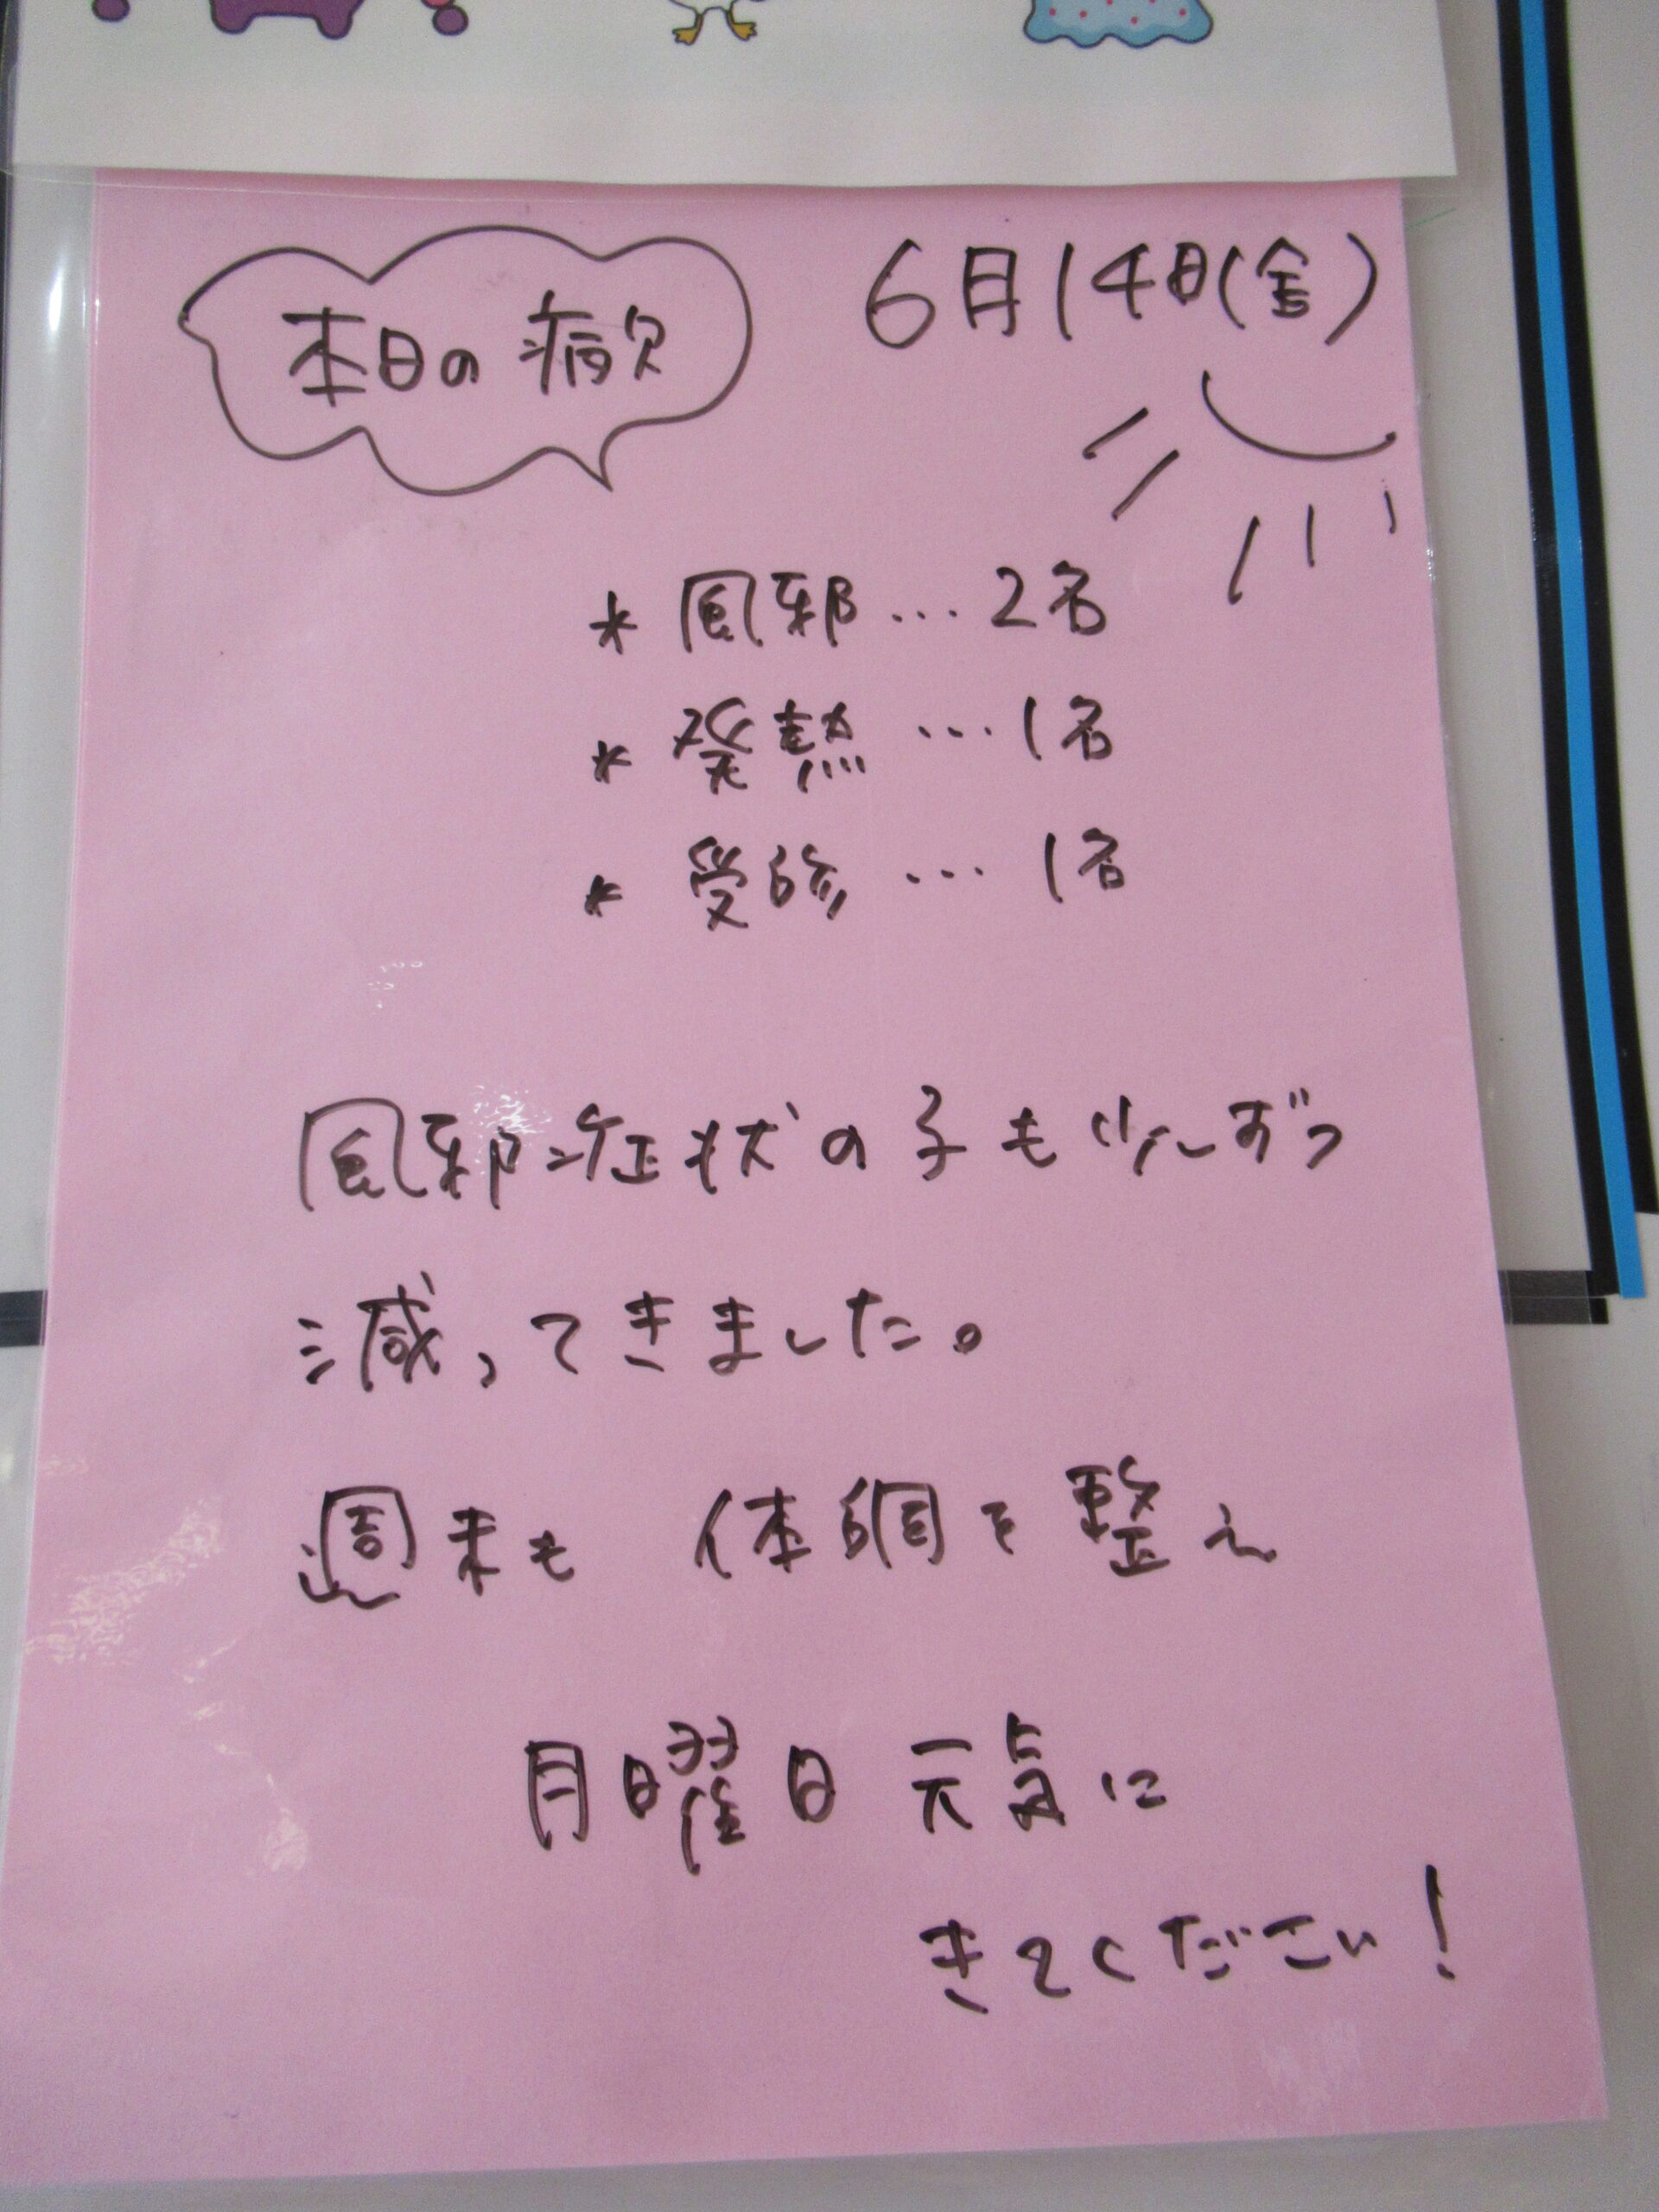 6月14日(金)
本日の病欠
* 風邪…2名
* 発熱…1名
* 受診…1名
風邪症状の子も少しずつ
減ってきました。
週末も 体調を整え
月曜日 元気に
きてください!